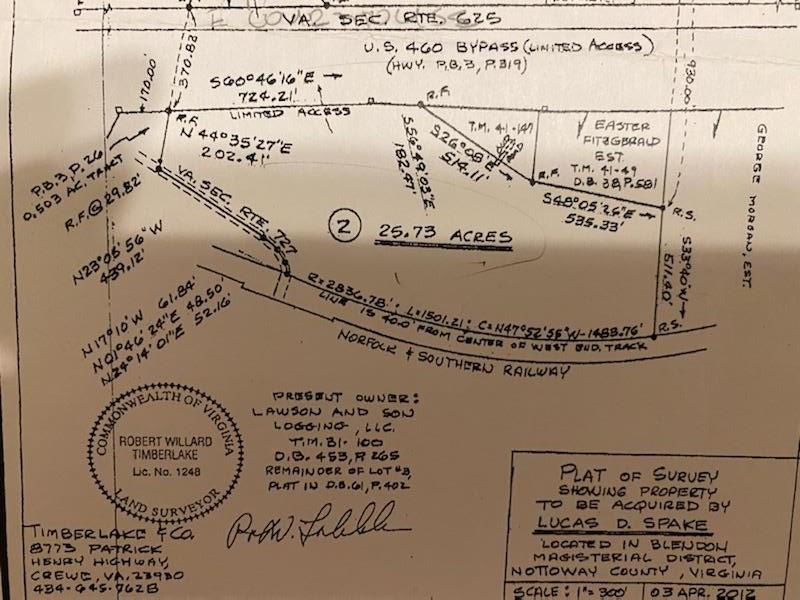 VA. SEC. RTE. 625
U.S. 460 BYPASS (LIMITED ACCESS)
(HWY. P.B.3, P.319)
170.00'
370.82'
930.00'
S60°46'16"E
724.21'
LIMITED ACCESS
R.F.
R.F.
N 44°35'27"E
202.41'
P.B.3, P.26
0.503 AC. TRACT
R.F. @ 29.82'
VA. SEC. RTE. 727
S56°49'02"E
182.47'
S26°08'E
514.11'
T.M. 41-147
EASTER
FITZGERALD
EST.
T.M. 41-49
D.B. 38, P.581
R.F.
S48°05'26"E
535.33'
R.S.
GEORGE MORGAN, EST.
S33°40'W
511.40'
R.S.
2
25.73 ACRES
N23°05'56"W
439.12'
N17°10'W 61.84'
N01°46'24"E 48.50'
N24°14'01"E 52.16'
R=2836.78' L=1501.21' C=N47°52'55"W-1483.76'
LINE IS 40.0' FROM CENTER OF WEST BND. TRACK
NORFOLK & SOUTHERN RAILWAY
COMMONWEALTH OF VIRGINIA
ROBERT WILLARD
TIMBERLAKE
Lic. No. 1248
LAND SURVEYOR
PRESENT OWNER:
LAWSON AND SON
LOGGING, LLC.
T.M. 31-100
D.B. 453, P. 265
REMAINDER OF LOT #3,
PLAT IN D.B. 61, P. 402
TIMBERLAKE & CO.
8773 PATRICK
HENRY HIGHWAY,
CREWE, VA. 23930
434-645-7628
PLAT OF SURVEY
SHOWING PROPERTY
TO BE ACQUIRED BY
LUCAS D. SPAKE
LOCATED IN BLENDON
MAGISTERIAL DISTRICT,
NOTTOWAY COUNTY, VIRGINIA
SCALE: 1"=300'
03 APR. 2012